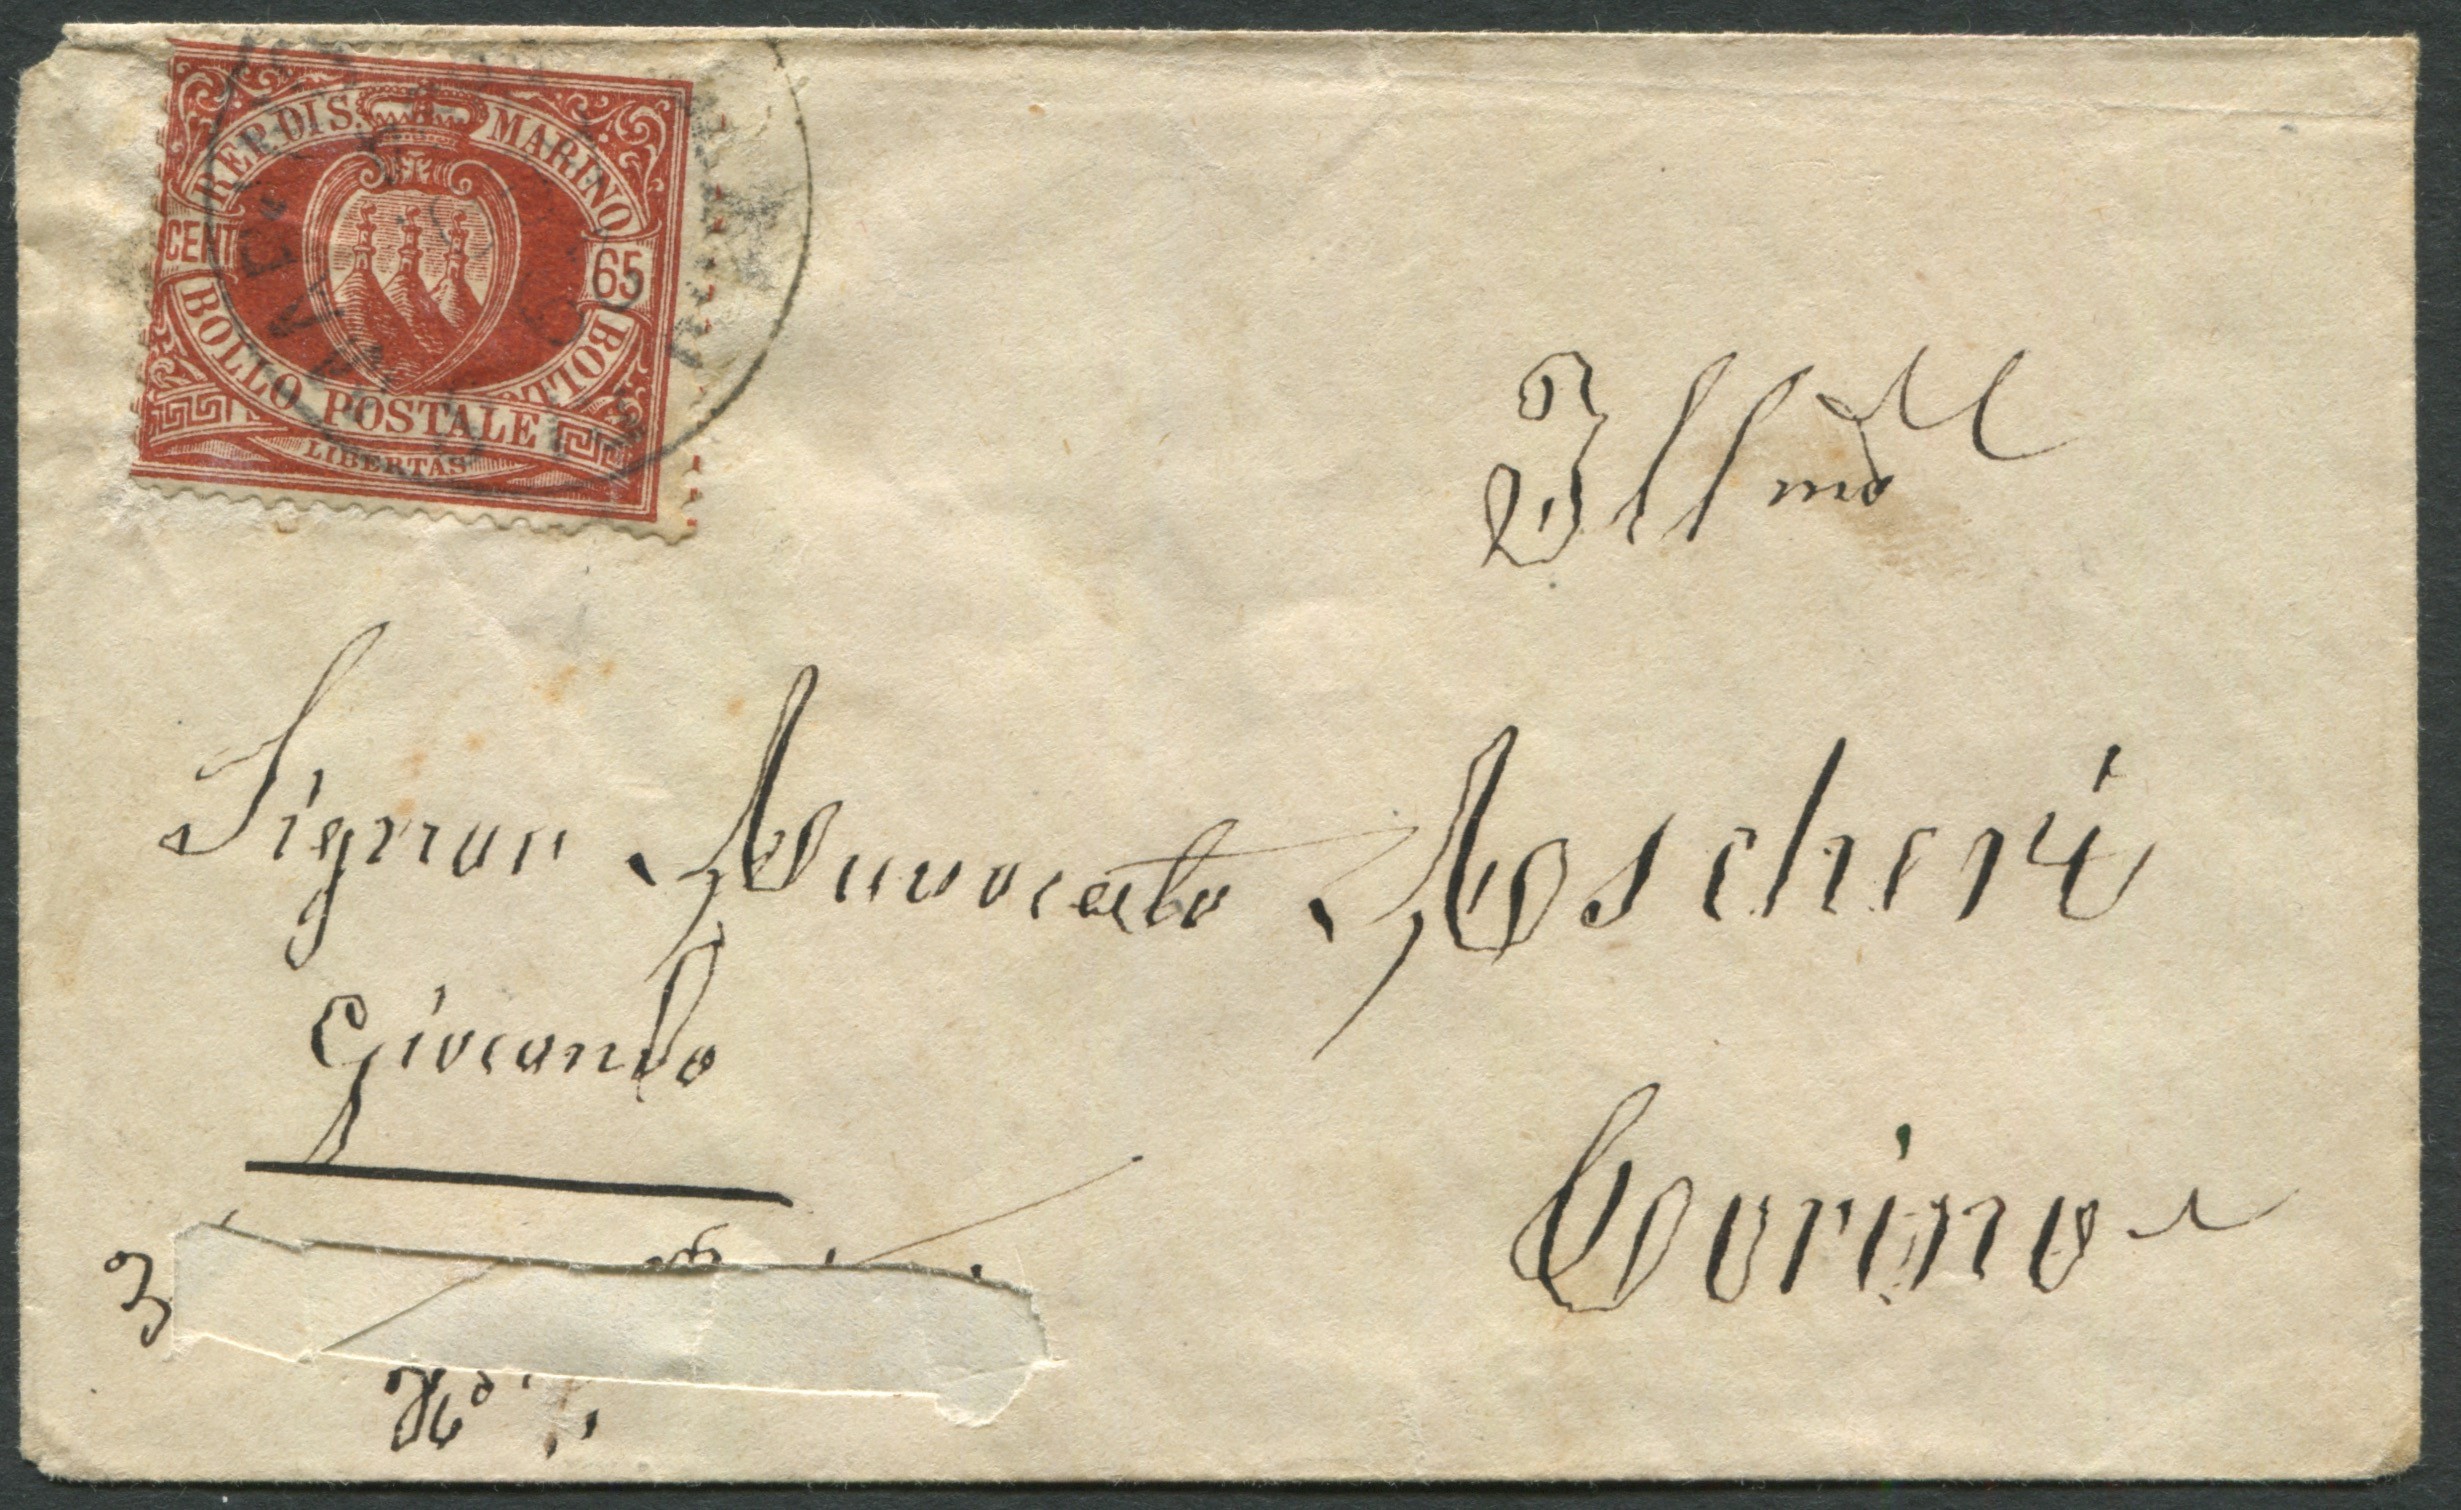 REP. DI S. MARINO
CENT 65
BOLLO POSTALE BOLLO
LIBERTAS
Illmo
Signor Avvocato Ascheri
Giocondo
Torino
3
No